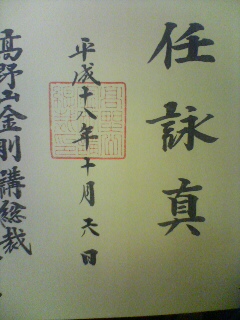 任詠真
平成十八年十月六日
高野山金剛講総裁